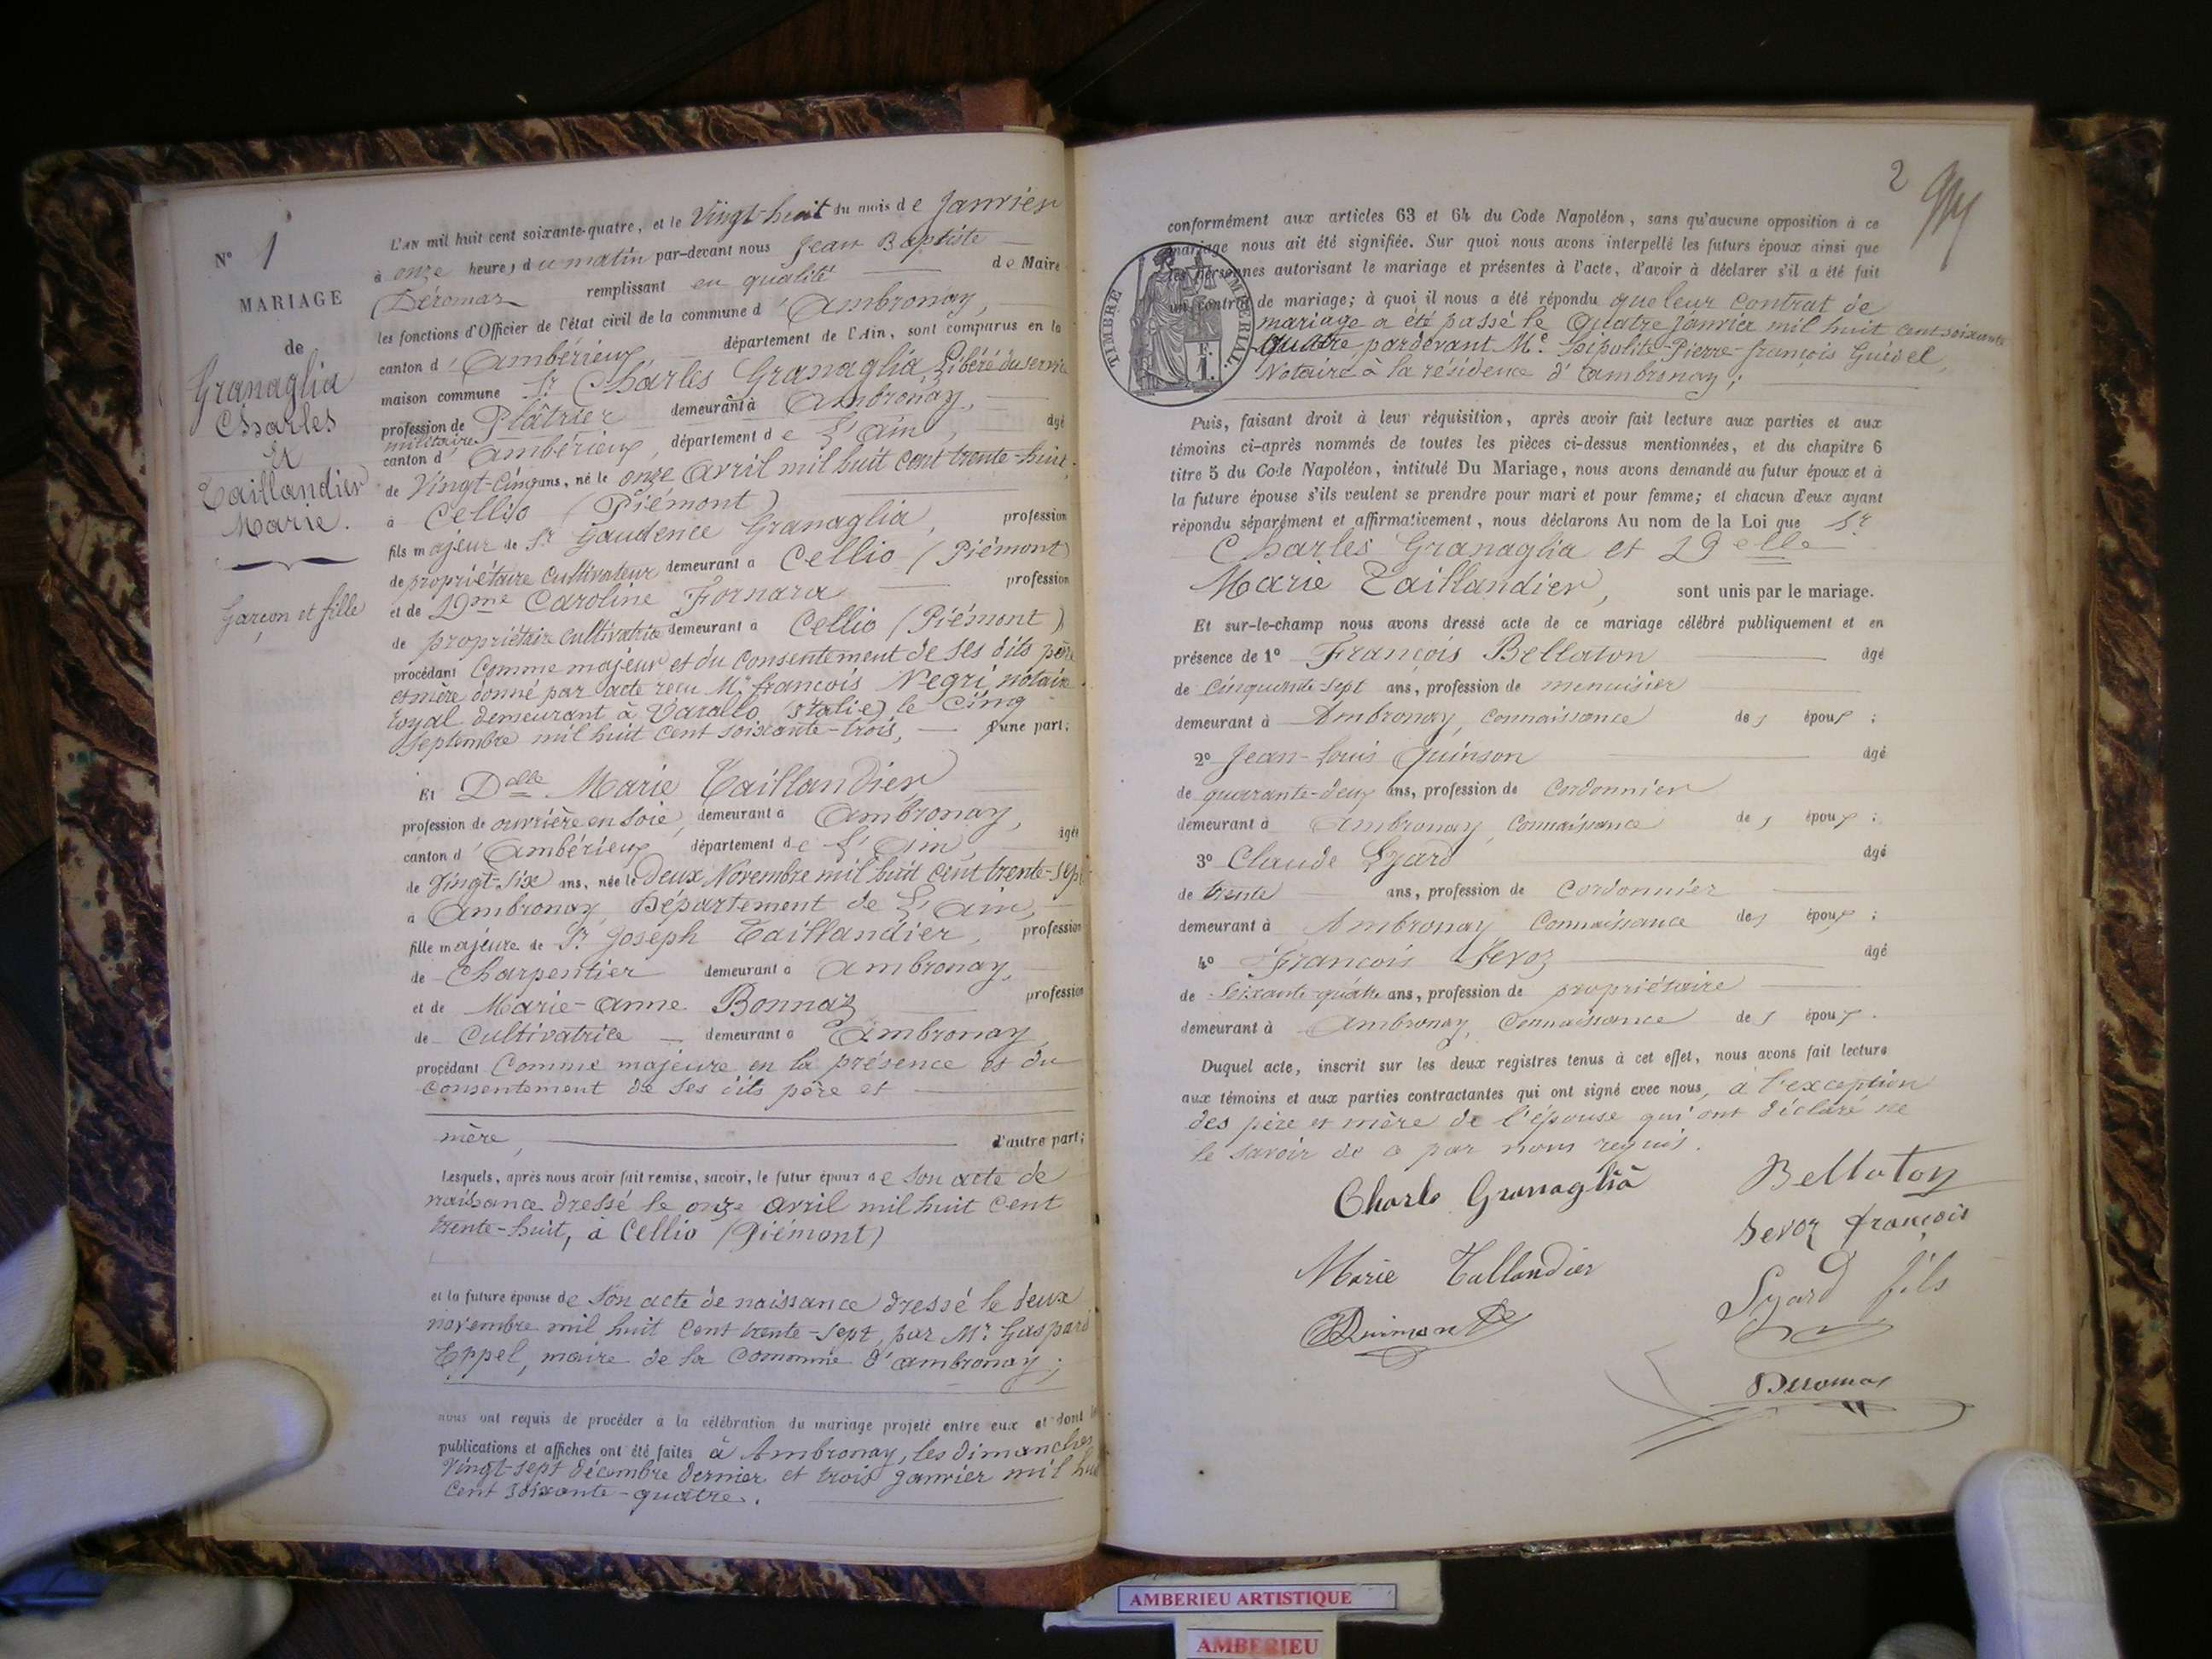 N° 1
MARIAGE
de
Granaglia
Charles
Et
Taillandier
Marie.
Garçon et fille
L'AN mil huit cent soixante-quatre, et le Vingt-huit du mois de Janvier
à onze heures du matin par-devant nous Jean Baptiste
Déromas remplissant en qualité de Maire
les fonctions d'Officier de l'état civil de la commune d'Ambronay,
canton d'Ambérieux, département de l'Ain, sont comparus en la
maison commune Sr Charles Granaglia Libéré du service
militaire
profession de Plâtrier demeurant à Ambronay,
canton d'Ambérieux, département de L'Ain, âgé
de Vingt-Cinq ans, né le onze Avril mil huit cent trente-huit,
à Cellio (Piémont)
fils majeur de Sr Gaudence Granaglia, profession
de propriétaire Cultivateur demeurant à Cellio (Piémont)
et de Dme Caroline Fornara profession
de propriétaire cultivatrice demeurant à Cellio (Piémont),
procédant Comme majeur et du Consentement de ses dits père
et mère donné par acte reçu Me françois Negri, notaire
royal demeurant à Varallo, italie, le Cinq
Septembre mil huit cent soixante-trois, d'une part;
Et Delle Marie Taillandier
profession de ouvrière en Soie, demeurant à Ambronay,
canton d'Ambérieux département de L'Ain, âgée
de Vingt-Six ans, née le Deux Novembre mil huit cent trente-sept
à Ambronay, Département de L'Ain,
fille majeure de Sr Joseph Taillandier, profession
de Charpentier demeurant à Ambronay,
et de Marie-Anne Bonnaz profession
de Cultivatrice demeurant à Ambronay
procédant Comme majeure en la présence et du
Consentement de ses dits père et
mère, d'autre part;
Lesquels, après nous avoir fait remise, savoir, le futur époux de Son acte de
naissance dressé le onze avril mil huit Cent
trente-huit, à Cellio (Piémont)
et la future épouse de Son acte de naissance dressé le deux
novembre mil huit Cent trente-sept, par Mr. Gaspard
Eppel, maire de la Commune d'Ambronay;
nous ont requis de procéder à la célébration du mariage projeté entre eux et dont les
publications et affiches ont été faites à Ambronay, les dimanches
Vingt-sept décembre dernier et trois Janvier mil huit
Cent soixante-quatre.
2
conformément aux articles 63 et 64 du Code Napoléon, sans qu'aucune opposition à ce
mariage nous ait été signifiée. Sur quoi nous avons interpellé les futurs époux ainsi que
les personnes autorisant le mariage et présentes à l'acte, d'avoir à déclarer s'il a été fait
un contrat de mariage; à quoi il nous a été répondu que leur Contrat de
mariage a été passé le Quatre Janvier mil huit cent soixante
quatre, pardevant Me. hipolite-Pierre-françois Guidel,
Notaire à la résidence d'Ambronay;
TIMBRE IMPERIAL
1 F.
Puis, faisant droit à leur réquisition, après avoir fait lecture aux parties et aux
témoins ci-après nommés de toutes les pièces ci-dessus mentionnées, et du chapitre 6
titre 5 du Code Napoléon, intitulé Du Mariage, nous avons demandé au futur époux et à
la future épouse s'ils veulent se prendre pour mari et pour femme; et chacun d'eux ayant
répondu séparément et affirmativement, nous déclarons Au nom de la Loi que Sr.
Charles Granaglia et Delle
Marie Taillandier, sont unis par le mariage.
Et sur-le-champ nous avons dressé acte de ce mariage célébré publiquement et en
présence de 1° François Bellaton âgé
de Cinquante-sept ans, profession de menuisier
demeurant à Ambronay, Connaissance des époux;
2° Jean-Louis Quinson âgé
de quarante-deux ans, profession de Cordonnier
demeurant à Ambronay Connaissance des époux;
3° Claude Lyard âgé
de trente ans, profession de Cordonnier
demeurant à Ambronay Connaissance des époux;
4° François Sevoz âgé
de Soixante-quatre ans, profession de propriétaire
demeurant à Ambronay, Connaissance des époux.
Duquel acte, inscrit sur les deux registres tenus à cet effet, nous avons fait lecture
aux témoins et aux parties contractantes qui ont signé avec nous, à l'exception
des père et mère de l'épouse qui ont déclaré ne
le savoir de ce par nous requis.
Charle Granaglia
Bellaton
Sevoz françois
Marie Tallandier
Lyard fils
Deromas
AMBERIEU ARTISTIQUE
AMBERIEU